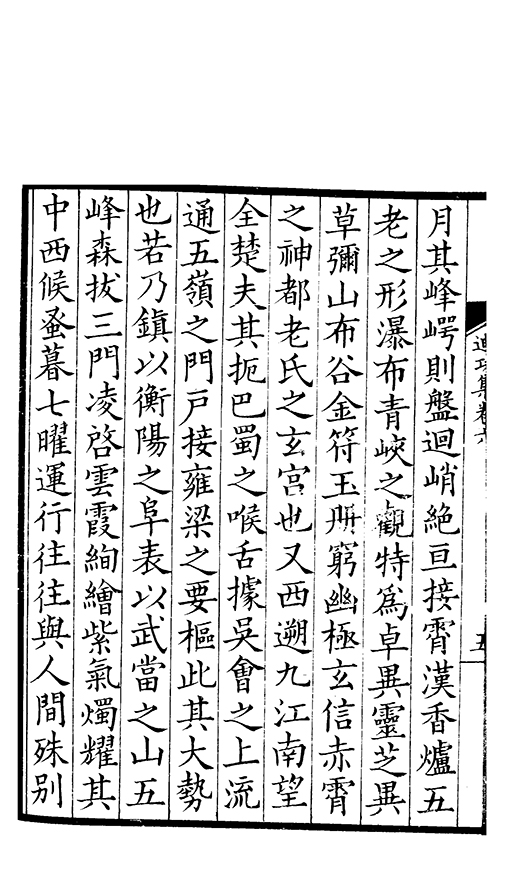 月其峰崿則盤迴峭絶亘接霄漢香爐五
老之形瀑布青峽之觀特爲卓異靈芝異
草彌山布谷金符玉册窮幽極玄信赤霄
之神都老氏之玄宫也又西遡九江南望
全楚夫其扼巴蜀之喉舌據吳會之上流
通五嶺之門戶接雍梁之要樞此其大勢
也若乃鎮以衡陽之阜表以武當之山五
峰森拔三門凌啓雲霞絢繪紫氣燭耀其
中西候蚤暮七曜運行往往與人間殊别